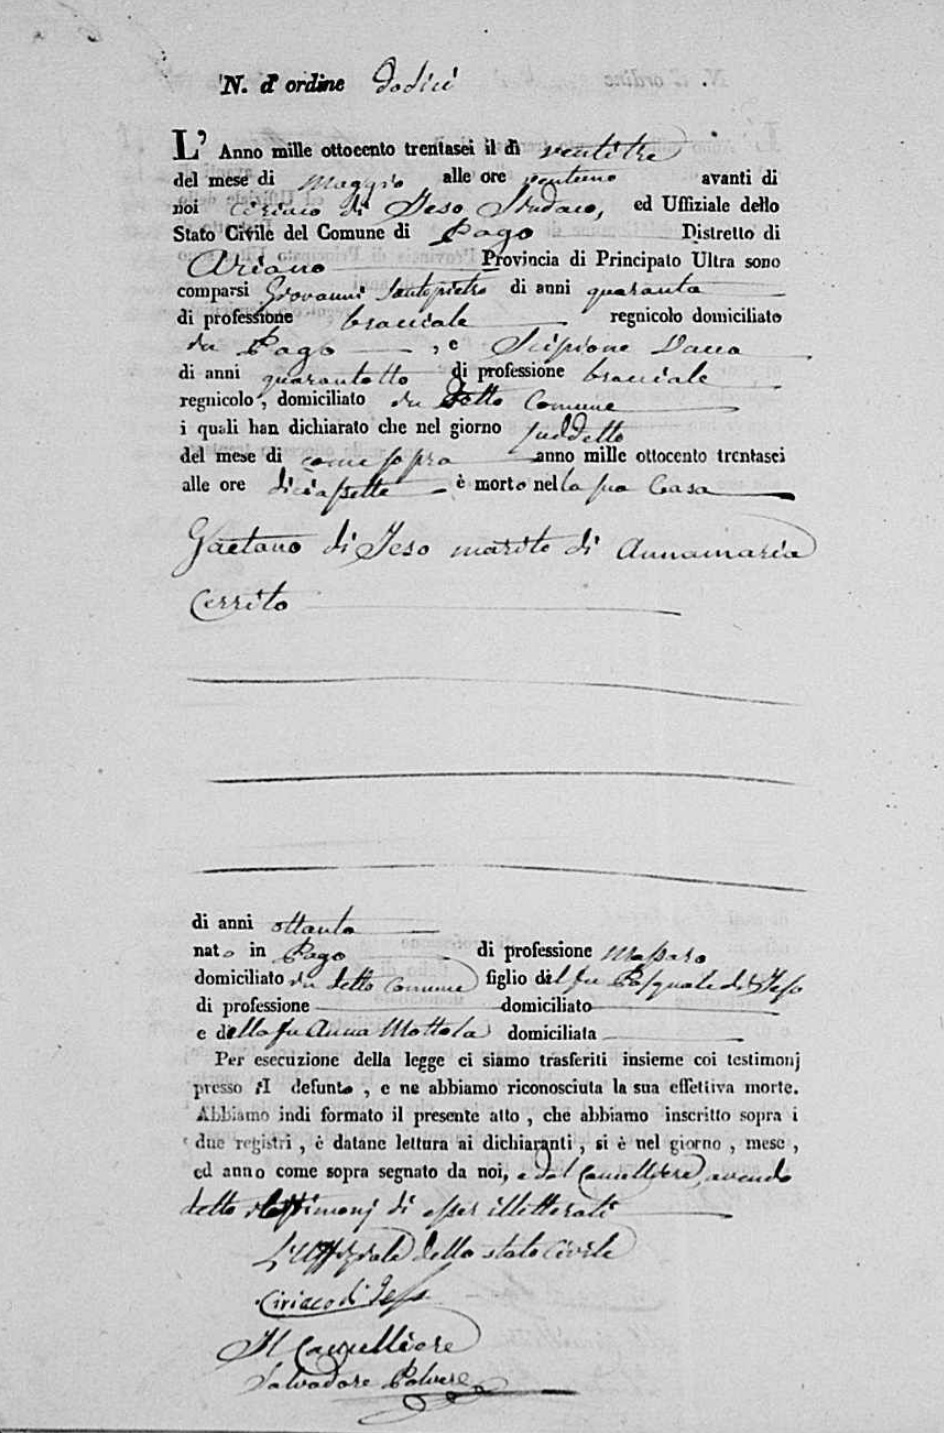 N. d' ordine dodici
L' Anno mille ottocento trentasei il dì ventitre
del mese di Maggio alle ore ventuno avanti di
noi Ciriaco di Jeso Sindaco, ed Uffiziale dello
Stato Civile del Comune di Pago Distretto di
Ariano Provincia di Principato Ultra sono
comparsi Giovanni Santopietro di anni quaranta
di professione bracciale regnicolo domiciliato
in Pago , e Scipione Vacca
di anni quarantotto di professione bracciale
regnicolo , domiciliato in detto Comune
i quali han dichiarato che nel giorno suddetto
del mese di come sopra anno mille ottocento trentasei
alle ore diciassette è morto nella sua Casa
Gaetano di Jeso marito di Annamaria
Cerrito
di anni ottanta
nato in Pago di professione Massaro
domiciliato in detto Comune figlio del fu Pasquale di Jeso
di professione domiciliato
e della fu Anna Mottola domiciliata
Per esecuzione della legge ci siamo trasferiti insieme coi testimonj
presso il defunto , e ne abbiamo riconosciuta la sua effettiva morte.
Abbiamo indi formato il presente atto , che abbiamo inscritto sopra i
due registri , è datane lettura ai dichiaranti , si è nel giorno , mese ,
ed anno come sopra segnato da noi, e dal Cancelliere, avendo
detto i testimonj di esser illitterati
L'Uffiziale dello stato Civile
Ciriaco di Jeso
Il Cancelliere
Salvadore Polvere